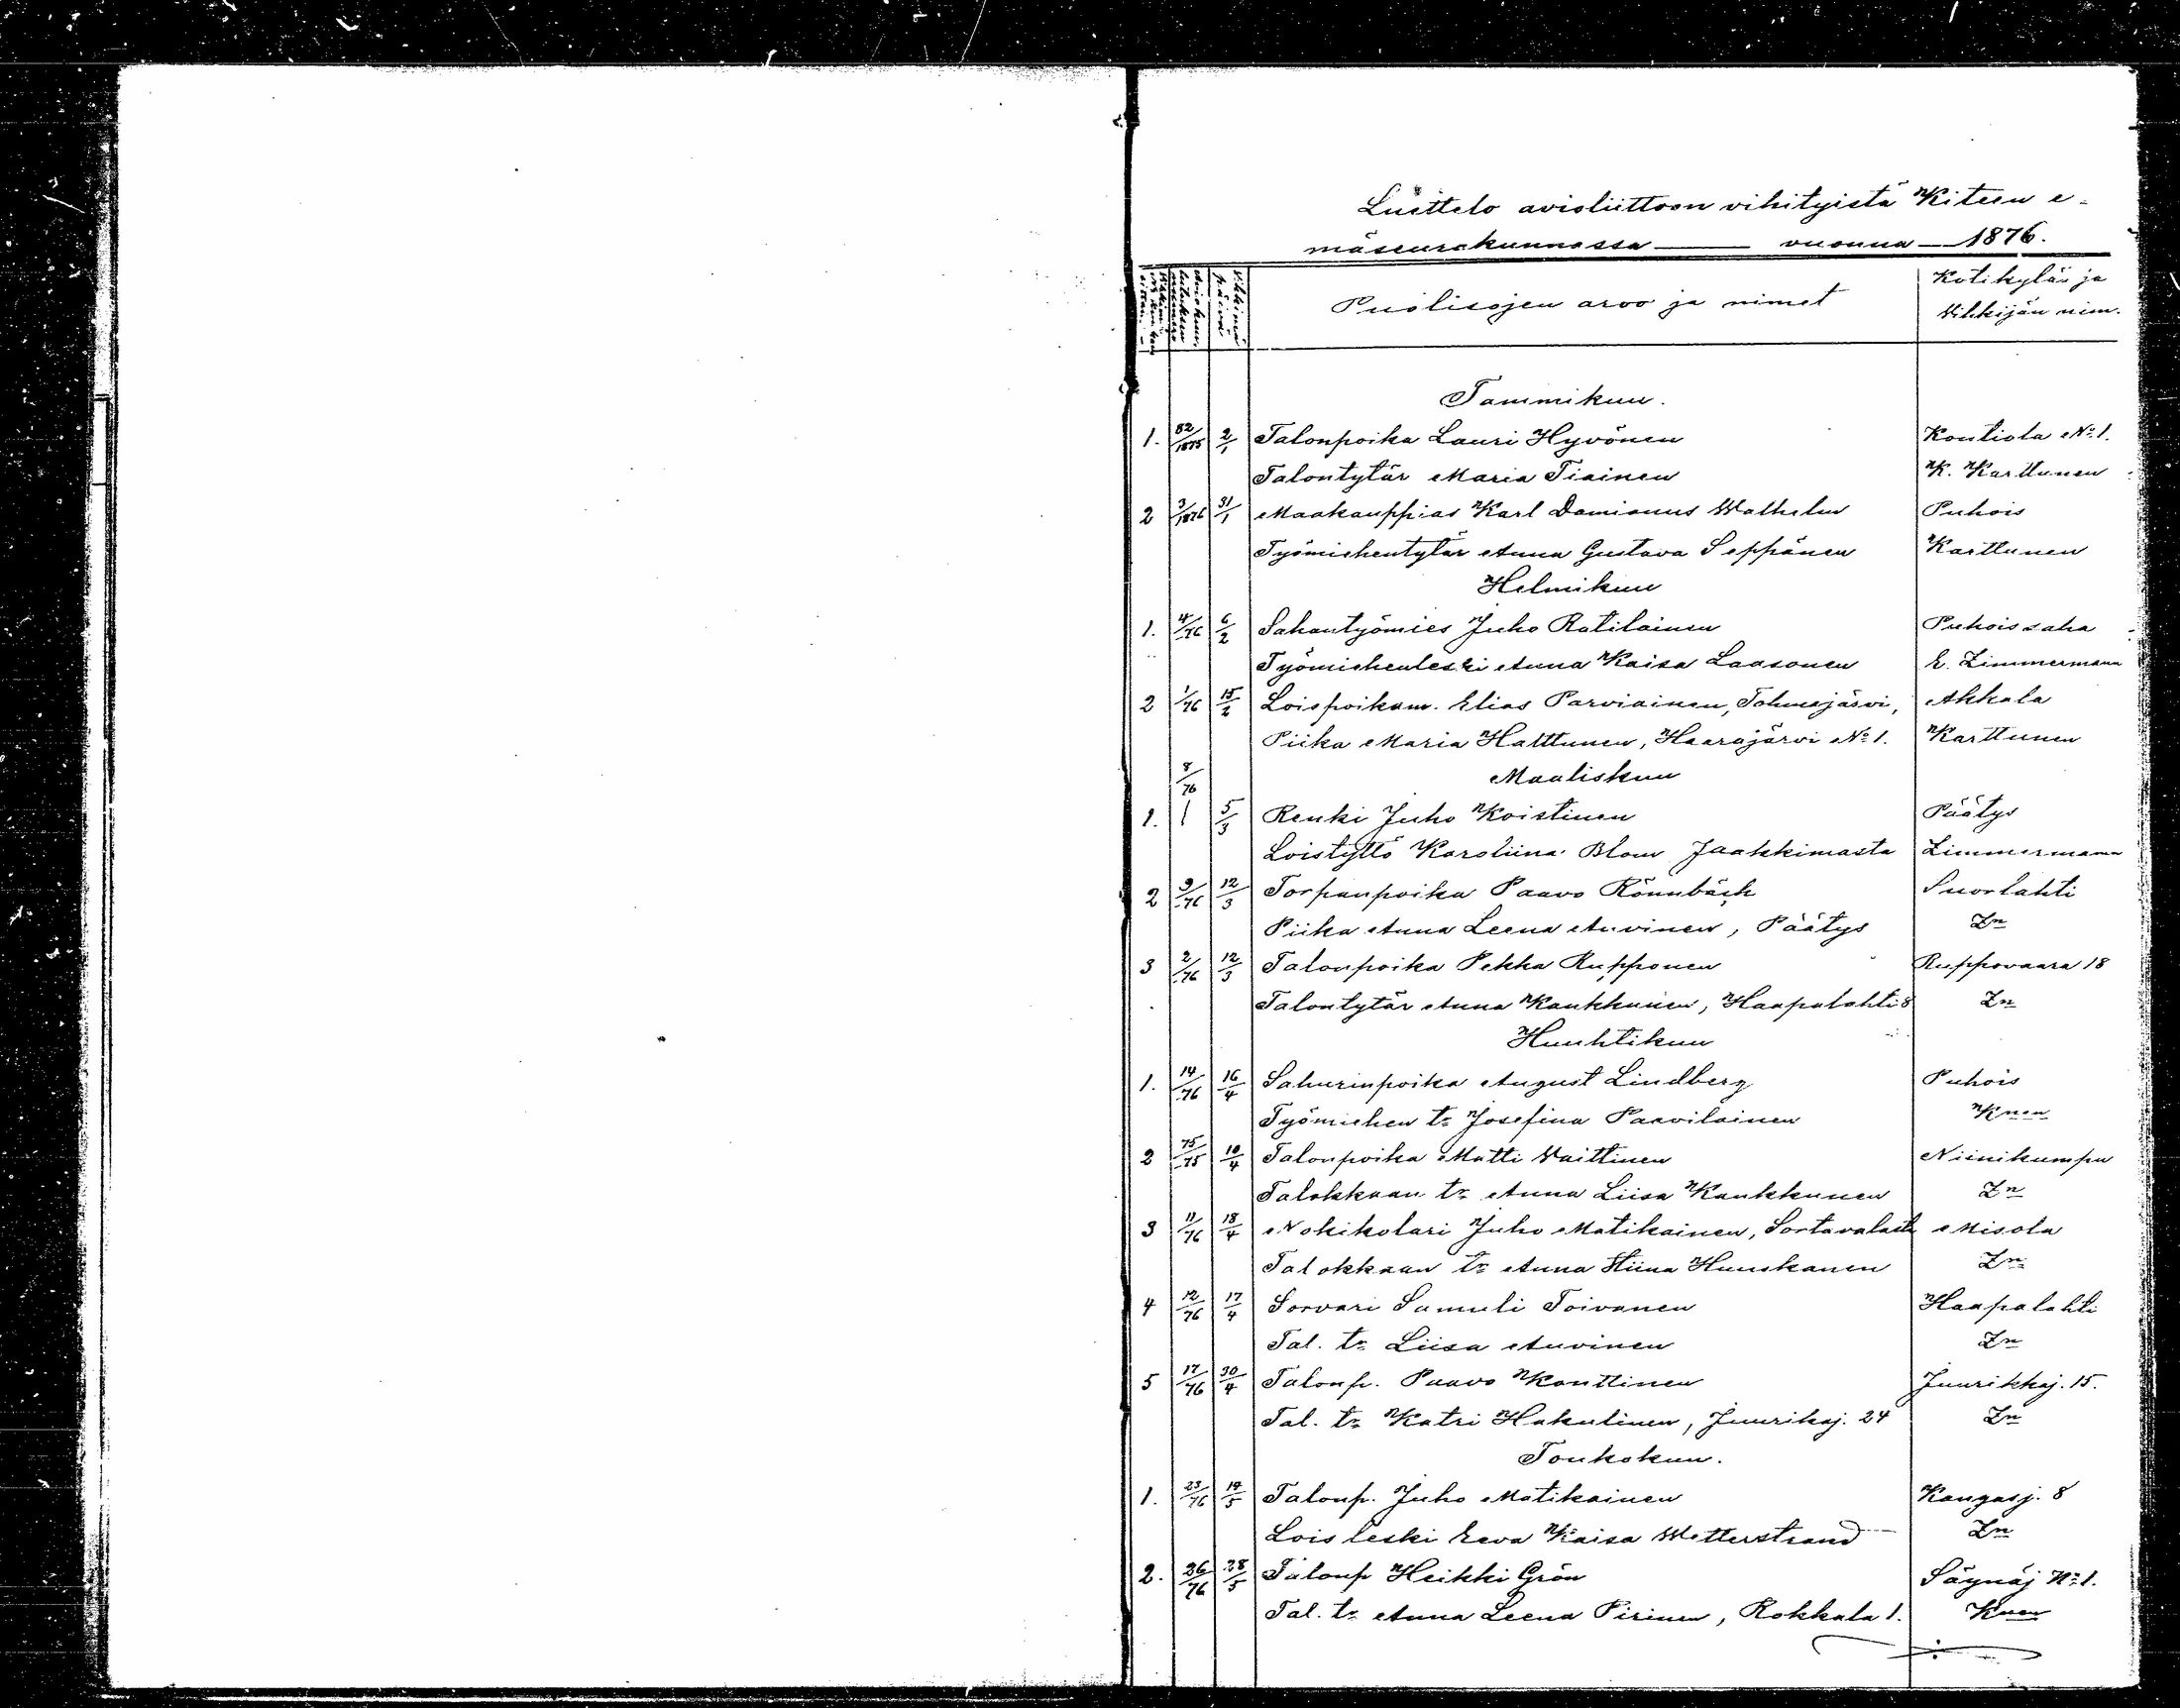 Luettelo avioliittoon vihityistä Kiteen e-
mäseurakunnassa — vuonna — 1876.
Vihkimä päivä
Puolisojen arvo ja nimet
Kotikylän ja
Vihkijän nim.
Tammikuu.
1. 82/1875 2/1 Talonpoika Lauri Hyvönen Koutiola No 1.
Talontytär Maria Tiainen K. Karttunen
2 3/1876 31/1 Maakauppias Karl Damianus Wathelm Puhois
Työmiehentytär Anna Gustava Seppänen Karttunen
Helmikuu
1. 4/76 6/2 Sahantyömies Juho Ratilainen Puhoissaha
Työmiehenleski Anna Kaisa Laasonen E. Zimmermann
2 1/76 15/2 Loispoikam. Elias Parviainen, Tohmajärvi, Akkala
Piika Maria Halttunen, Haarajärvi No 1. Karttunen
8/76 Maaliskuu
1. 5/3 Renki Juho Koistinen Päätys
Loistyttö Karoliina Blom Jaakkimasta Zimmermann
2 9/76 12/3 Torpanpoika Paavo Rönnbäck Suorlahti
Piika Anna Leena Auvinen, Päätys Zn
3 2/76 12/3 Talonpoika Pekka Rupponen Ruppovaara 18
Talontytär Anna Kaukkunen, Haapalahti 8 Zn
Huuhtikuu
1. 14/76 16/4 Sahurinpoika August Lindberg Puhois
Työmiehen tr Josefina Paavilainen Knen
2 75/75 10/4 Talonpoika Matti Waittinen Niinikumpu
Talokkaan tr Anna Liisa Kaukkunen Zn
3 11/76 18/4 Nokikolari Juho Matikainen, Sortavalasta Misola
Talokkaan tr Anna Stiina Huuskanen Zn
4 12/76 17/4 Sorvari Samuli Toivanen Haapalahti
Tal. tr Liisa Auvinen Zn
5 17/76 30/4 Talonp. Paavo Konttinen Juurikkaj. 15.
Tal. tr Katri Hakulinen, Juurikaj. 24 Zn
Toukokuu.
1. 23/76 14/5 Talonp. Juho Matikainen Kangasj. 8
Lois leski Eeva Kaisa Wetterstrand Zn
2. 26/76 28/5 Talonp Heikki Grön Säynäj No 1.
Tal. tr Anna Leena Pirinen, Rokkala 1. Knen